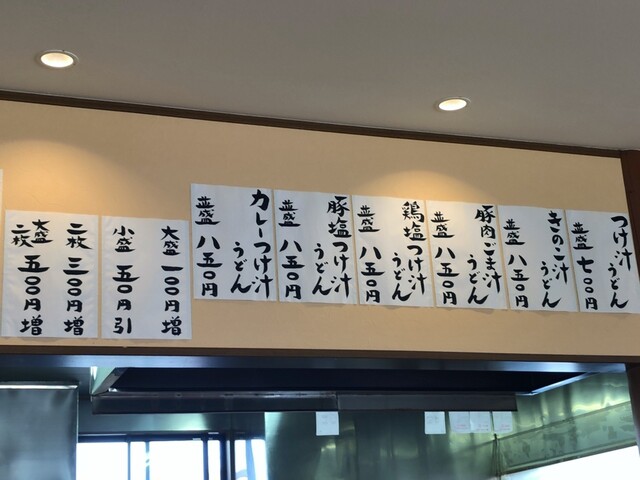 つけ汁うどん
並盛 七〇〇円
きのこ汁うどん
並盛 八五〇円
豚肉ごま汁うどん
並盛 八五〇円
鶏塩つけ汁うどん
並盛 八五〇円
豚塩つけ汁うどん
並盛 八五〇円
カレーつけ汁うどん
並盛 八五〇円
大盛 一〇〇円増
小盛 五〇円引
二枚 三〇〇円増
大盛二枚 五〇〇円増